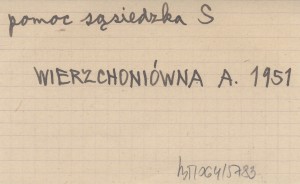 pomoc sąsiedzka S
WIERZCHONIÓWNA A. 1951